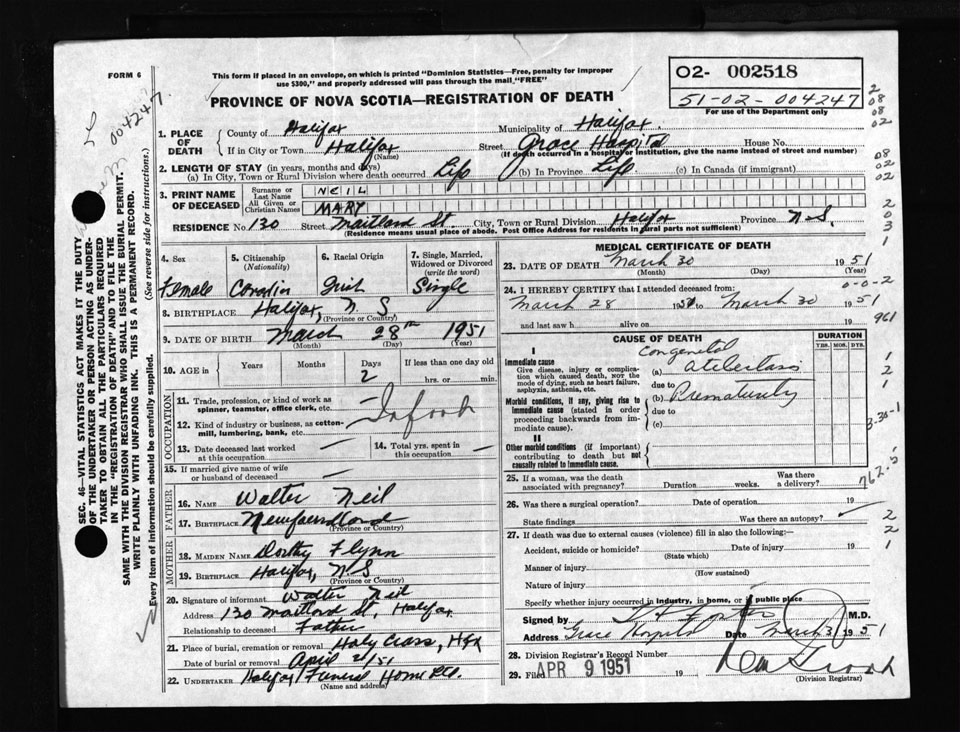 FORM 6
This form if placed in an envelope, on which is printed "Dominion Statistics—Free, penalty for improper
use $300," and properly addressed will pass through the mail, "FREE"
PROVINCE OF NOVA SCOTIA—REGISTRATION OF DEATH
02- 002518
51-02-004247
For use of the Department only
004247
1. PLACE OF DEATH
County of Halifax Municipality of Halifax
If in City or Town Halifax (Name) Street Grace Hospital House No.
(If death occurred in a hospital or institution, give the name instead of street and number)
2. LENGTH OF STAY (in years, months and days)
(a) In City, Town or Rural Division where death occurred Life (b) In Province Life (c) In Canada (if immigrant)
3. PRINT NAME OF DECEASED
Surname or Last Name NEIL
All Given or Christian Names MARY
RESIDENCE No. 130 Street Maitland St. City, Town or Rural Division Halifax Province N.S.
(Residence means usual place of abode. Post Office Address for residents in rural parts not sufficient)
4. Sex Female
5. Citizenship (Nationality)
6. Racial Origin Irish
7. Single, Married, Widowed or Divorced (write the word) Single
8. BIRTHPLACE Halifax, N.S (Province or Country)
9. DATE OF BIRTH March 28th 1951
(Month) (Day) (Year)
10. AGE in Years Months Days 2 If less than one day old hrs. or min.
OCCUPATION
11. Trade, profession or kind of work as spinner, teamster, office clerk, etc.
12. Kind of industry or business, as cotton-mill, lumbering, bank, etc.
13. Date deceased last worked at this occupation
14. Total yrs. spent in this occupation
15. If married give name of wife or husband of deceased
FATHER
16. NAME Walter Neil
17. BIRTHPLACE Newfoundland
(Province or Country)
MOTHER
18. MAIDEN NAME Dorthy Flynn
19. BIRTHPLACE Halifax, N.S
(Province or Country)
20. Signature of informant Walter Neil
Address 130 Maitland St, Halifax
Relationship to deceased Father
21. Place of burial, cremation or removal Holy Cross, Hfx
Date of burial or removal April 2/51
22. UNDERTAKER Halifax Funeral Home Ltd.
(Name and address)
MEDICAL CERTIFICATE OF DEATH
23. DATE OF DEATH March 30 1951
(Month) (Day) (Year)
24. I HEREBY CERTIFY that I attended deceased from:
March 28 1951 to March 30 1951
and last saw h alive on 19
CAUSE OF DEATH
DURATION
YRS. MOS. DYS.
I
Immediate cause
Give disease, injury or complication which caused death, NOT the mode of dying, such as heart failure, asphyxia, asthenia, etc.
Congenital
(a)
due to
(b) Prematurity
due to
(c)
Morbid conditions, if any, giving rise to immediate cause (stated in order proceeding backwards from immediate cause).
II
Other morbid conditions (if important) contributing to death but not causally related to immediate cause.
25. If a woman, was the death associated with pregnancy? Duration weeks. Was there a delivery?
26. Was there a surgical operation? Date of operation 19
State findings Was there an autopsy?
27. If death was due to external causes (violence) fill in also the following:—
Accident, suicide or homicide? Date of injury 19
(State which)
Manner of injury
(How sustained)
Nature of injury
Specify whether injury occurred in industry, in home, or in public place
Signed by M.D.
Address Grace Hospital Date March 31 1951
28. Division Registrar's Record Number
29. Filed APR 9 1951 19
(Division Registrar)
0-0-2
961
762.5
SEC. 46—VITAL STATISTICS ACT MAKES IT THE DUTY
OF THE UNDERTAKER OR PERSON ACTING AS UNDER-
TAKER TO OBTAIN ALL THE PARTICULARS REQUIRED
IN THE "REGISTRATION OF DEATH" AND TO FILE THE
SAME WITH THE DIVISION REGISTRAR WHO SHALL ISSUE THE BURIAL PERMIT.
WRITE PLAINLY WITH UNFADING INK. THIS IS A PERMANENT RECORD.
Every item of information should be carefully supplied. (See reverse side for instructions.)